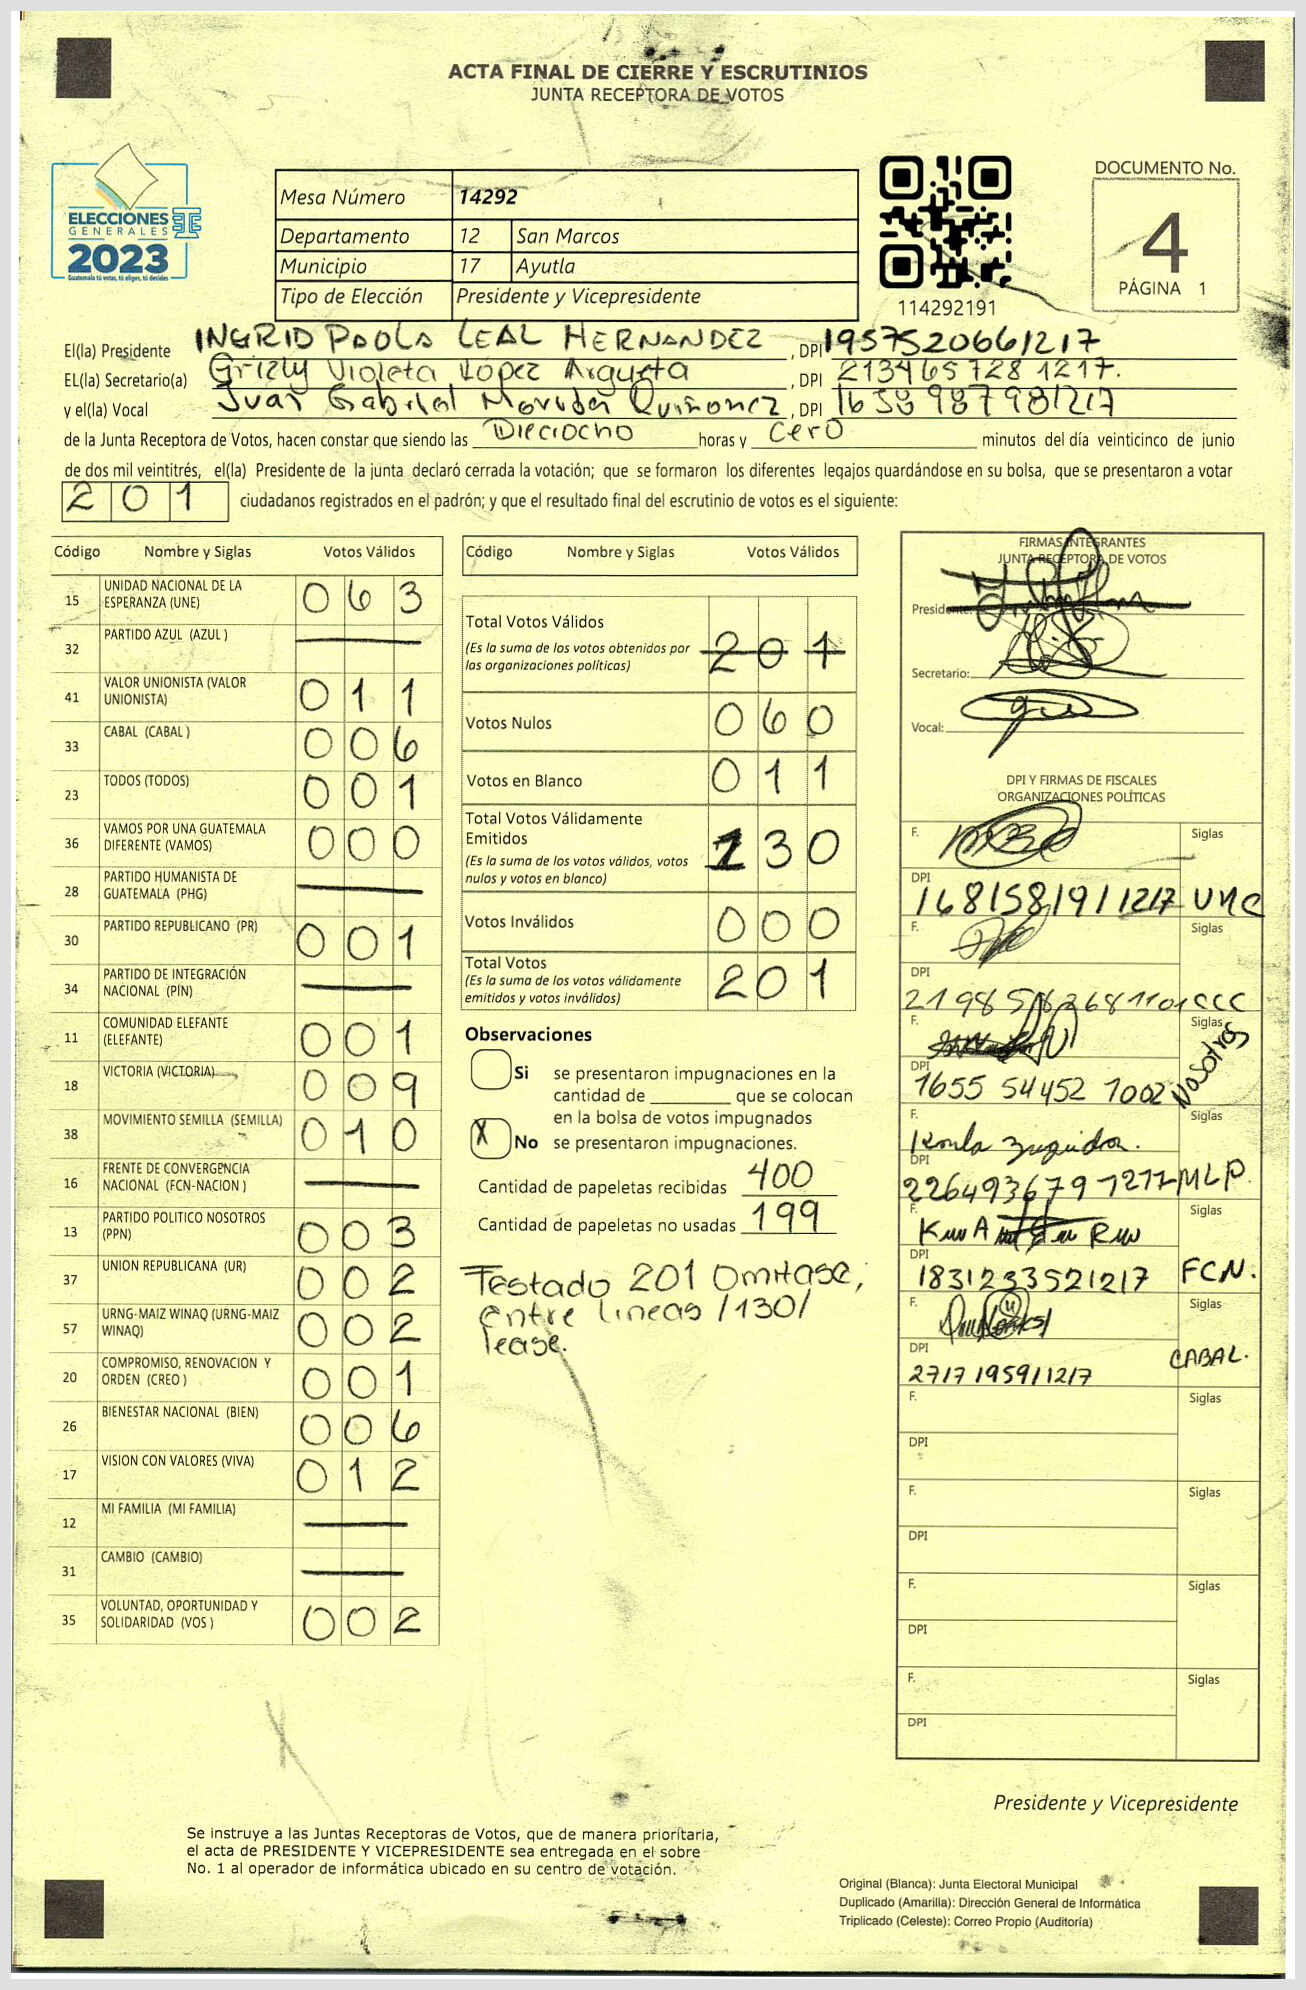 ACTA FINAL DE CIERRE Y ESCRUTINIOS
JUNTA RECEPTORA DE VOTOS
ELECCIONES
GENERALES
2023
Guatemala tú votas, tú eliges, tú decides
Mesa Número 14292
Departamento 12 San Marcos
Municipio 17 Ayutla
Tipo de Elección Presidente y Vicepresidente
114292191
DOCUMENTO No.
4
PÁGINA 1
El(la) Presidente INGRID PAOLA LEAL HERNANDEZ, DPI 1957520661217
EL(la) Secretario(a) Grizly Violeta López Argueta, DPI 2134657281217.
y el(la) Vocal Juan Gabriel Quiñonez, DPI 1658987981217
de la Junta Receptora de Votos, hacen constar que siendo las Dieciocho horas y cero minutos del día veinticinco de junio
de dos mil veintitrés, el(la) Presidente de la junta declaró cerrada la votación; que se formaron los diferentes legajos guardándose en su bolsa, que se presentaron a votar
201 ciudadanos registrados en el padrón; y que el resultado final del escrutinio de votos es el siguiente:
Código Nombre y Siglas Votos Válidos
15 UNIDAD NACIONAL DE LA ESPERANZA (UNE) 063
32 PARTIDO AZUL (AZUL )
41 VALOR UNIONISTA (VALOR UNIONISTA) 011
33 CABAL (CABAL ) 006
23 TODOS (TODOS) 001
36 VAMOS POR UNA GUATEMALA DIFERENTE (VAMOS) 000
28 PARTIDO HUMANISTA DE GUATEMALA (PHG)
30 PARTIDO REPUBLICANO (PR) 001
34 PARTIDO DE INTEGRACIÓN NACIONAL (PIN)
11 COMUNIDAD ELEFANTE (ELEFANTE) 001
18 VICTORIA (VICTORIA) 009
38 MOVIMIENTO SEMILLA (SEMILLA) 010
16 FRENTE DE CONVERGENCIA NACIONAL (FCN-NACION )
13 PARTIDO POLITICO NOSOTROS (PPN) 003
37 UNION REPUBLICANA (UR) 002
57 URNG-MAIZ WINAQ (URNG-MAIZ WINAQ) 002
20 COMPROMISO, RENOVACION Y ORDEN (CREO ) 001
26 BIENESTAR NACIONAL (BIEN) 006
17 VISION CON VALORES (VIVA) 012
12 MI FAMILIA (MI FAMILIA)
31 CAMBIO (CAMBIO)
35 VOLUNTAD, OPORTUNIDAD Y SOLIDARIDAD (VOS ) 002
Código Nombre y Siglas Votos Válidos
Total Votos Válidos
(Es la suma de los votos obtenidos por
las organizaciones políticas) 201
Votos Nulos 060
Votos en Blanco 011
Total Votos Válidamente
Emitidos
(Es la suma de los votos válidos, votos
nulos y votos en blanco) 130
Votos Inválidos 000
Total Votos
(Es la suma de los votos válidamente
emitidos y votos inválidos) 201
Observaciones
Si se presentaron impugnaciones en la
cantidad de que se colocan
en la bolsa de votos impugnados
X No se presentaron impugnaciones.
Cantidad de papeletas recibidas 400
Cantidad de papeletas no usadas 199
Testado 201 Omitase,
entre lineas /130/
lease.
FIRMAS INTEGRANTES
JUNTA RECEPTORA DE VOTOS
Presidente:
Secretario:
Vocal:
DPI Y FIRMAS DE FISCALES
ORGANIZACIONES POLÍTICAS
F. Siglas
DPI
1681581911217 UNE
F. Siglas
DPI
2198582681101 CCC
F. Siglas
DPI
1655 54452 1002 Nosotros
F. Siglas
DPI
2264936791217 MLP.
F. Siglas
DPI
1831233521217 FCN.
F. Siglas
DPI
2717195911217 CABAL.
F. Siglas
DPI
F. Siglas
DPI
F. Siglas
DPI
F. Siglas
DPI
Presidente y Vicepresidente
Se instruye a las Juntas Receptoras de Votos, que de manera prioritaria,
el acta de PRESIDENTE Y VICEPRESIDENTE sea entregada en el sobre
No. 1 al operador de informática ubicado en su centro de votación.
Original (Blanca): Junta Electoral Municipal
Duplicado (Amarilla): Dirección General de Informática
Triplicado (Celeste): Correo Propio (Auditoría)